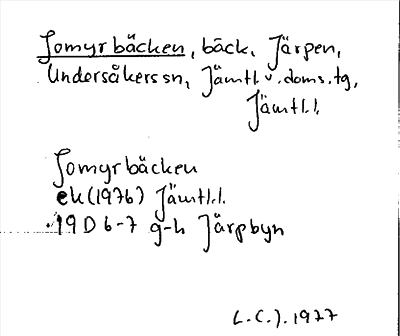 Jomyrbäcken, bäck, Järpen,
Undersåkers sn, Jämtl. v. doms. tg,
Jämtl.l.
Jomyrbäcken
ek (1976) Jämtl.l.
19D 6-7 g-h Järpbyn
L.C.J. 1977